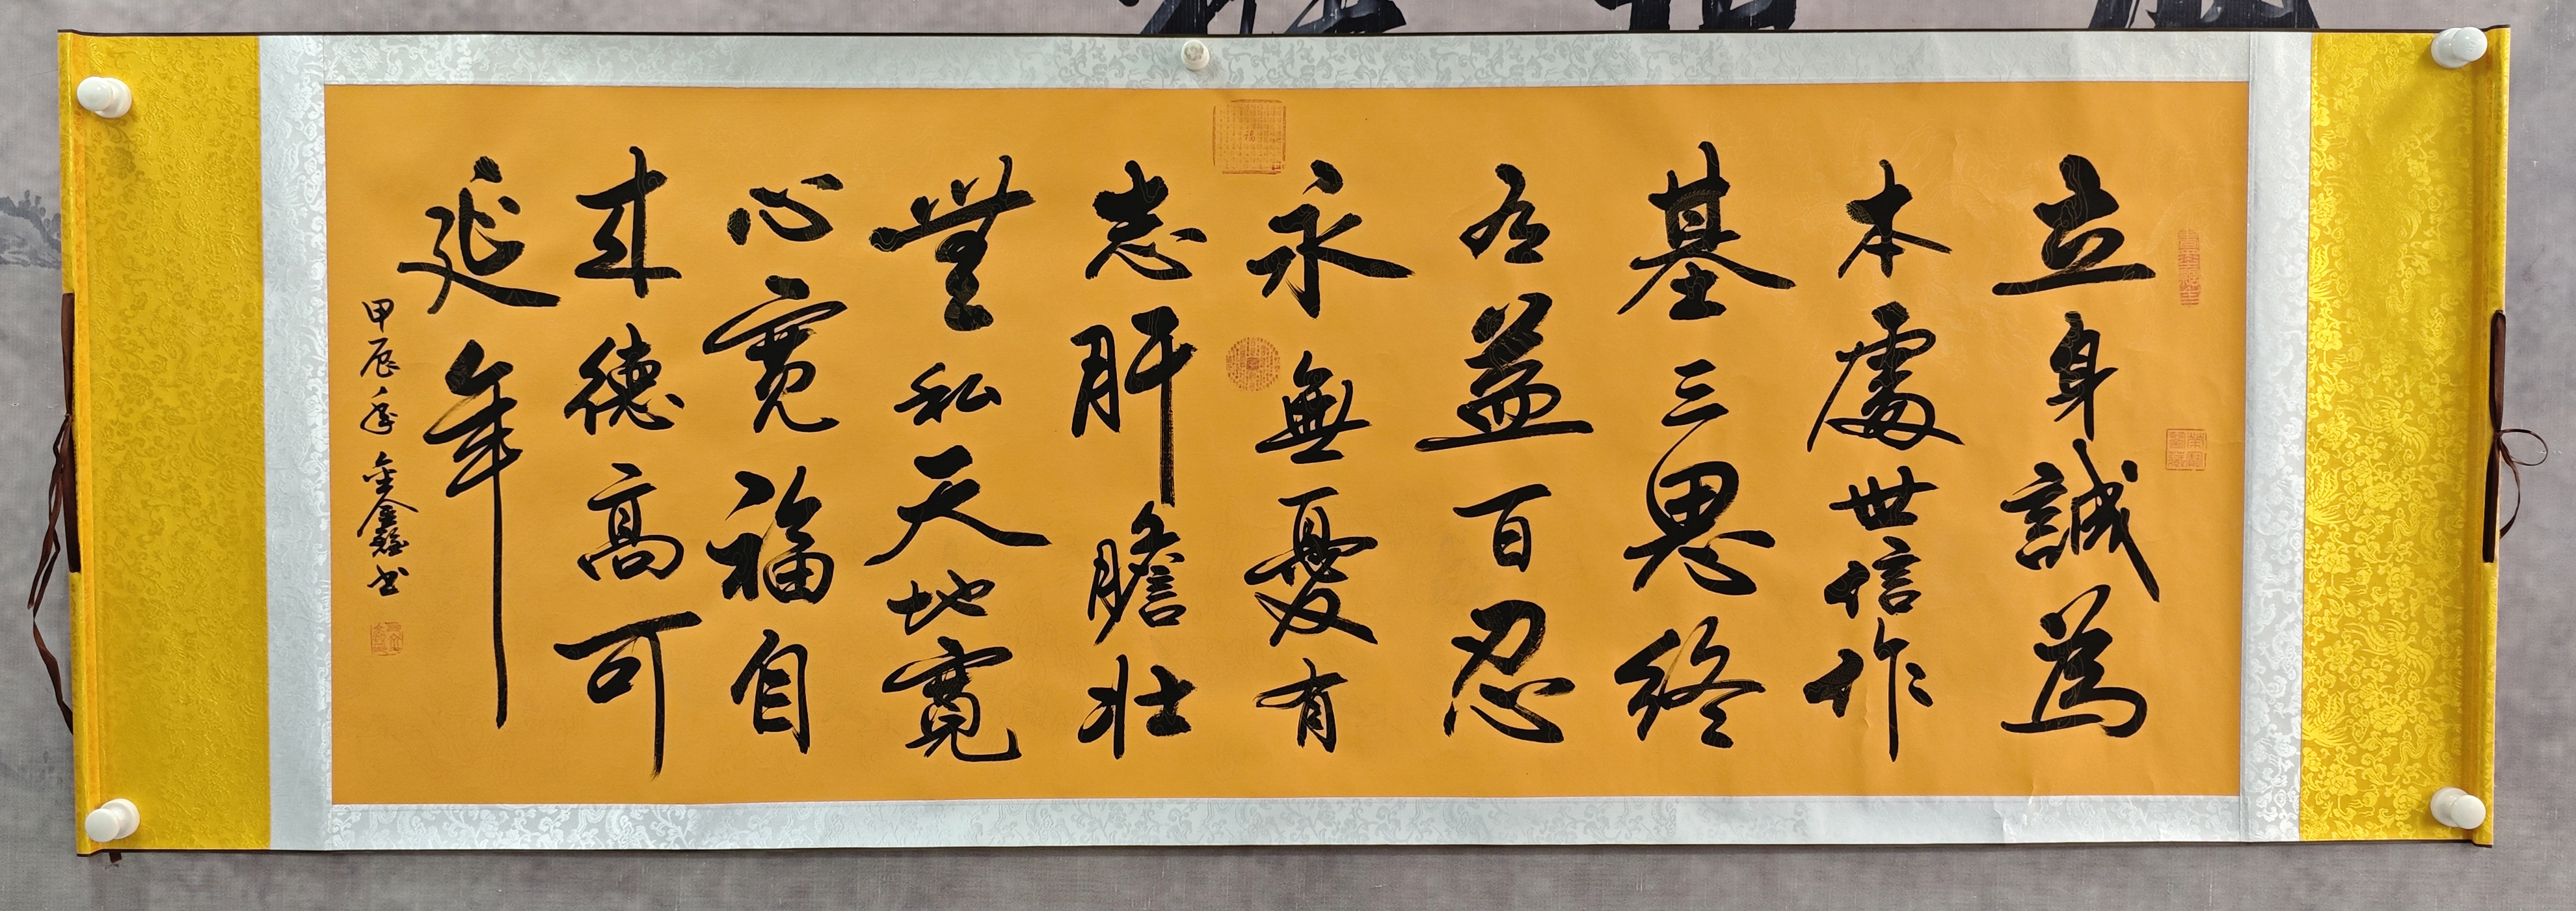 立身誠為
本處世信作
基三思終
有益百忍
永無憂有
志肝膽壯
無私天地寬
心寬福自
來德高可
延年
甲辰年金鑫书